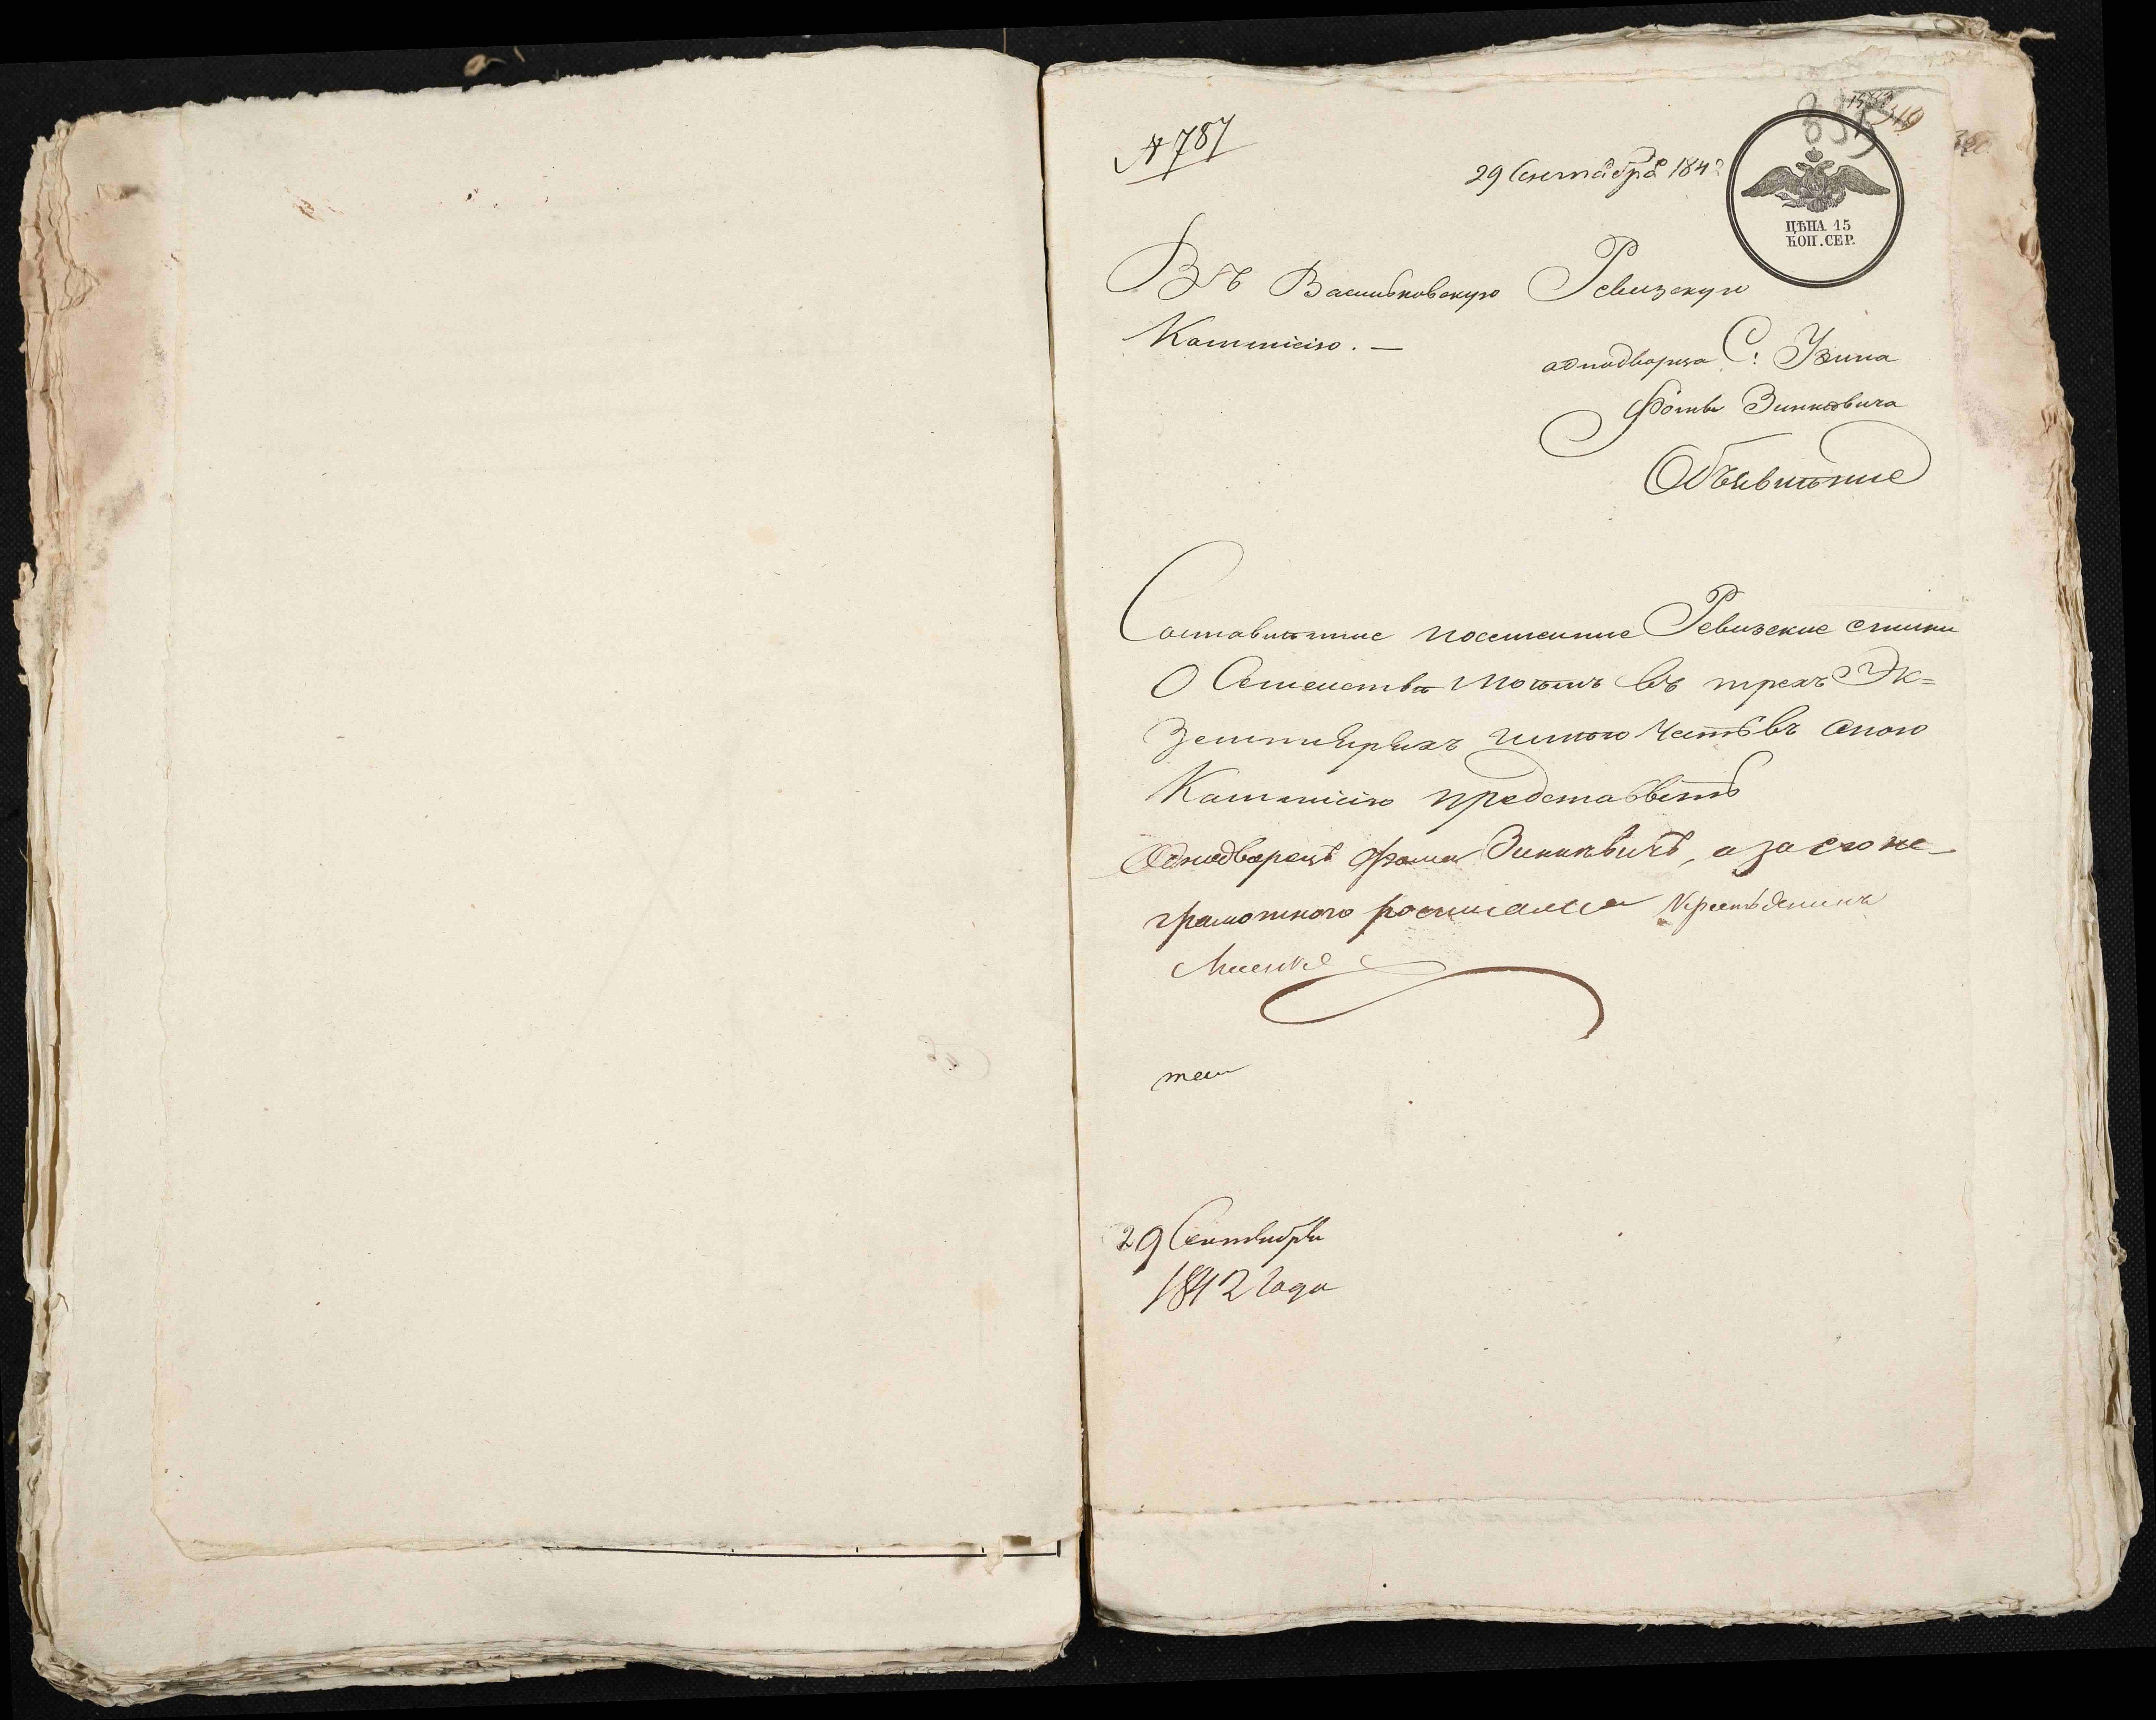 № 787
29 Сентября 1842
ЦѢНА 15
КОП. СЕР.
Въ Васильковскую Ревизскую
Коммисiю. —
однодворца С: Узина
Фомы Зинкевича
Объявление
Составленные посемейные Ревизские списки
О Семействе моемъ въ трехъ Эк=
Земплярахъ имею честь въ оную
Коммисiю представить
Однодворецъ Фома Зинкевичъ, а за его не-
грамотного росписался
29 Сентября
1842 Года